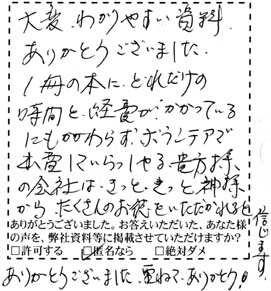 大変、わかりやすい資料、
ありがとうございました。
1冊の本に、どれだけの
時間と、経費が、かかっている
にもかかわらず、ボランテアで
本当にていらっしゃる貴方様
の会社は、きっと、きっと神様
から、たくさんのお徳をいただかれると
信じます。
ありがとうございました。お答えいただいた、あなた様
の声を、弊社資料等に掲載させていただけますか?
□許可する □匿名なら □絶対ダメ
ありがとうございました。重ねて、ありがとう!